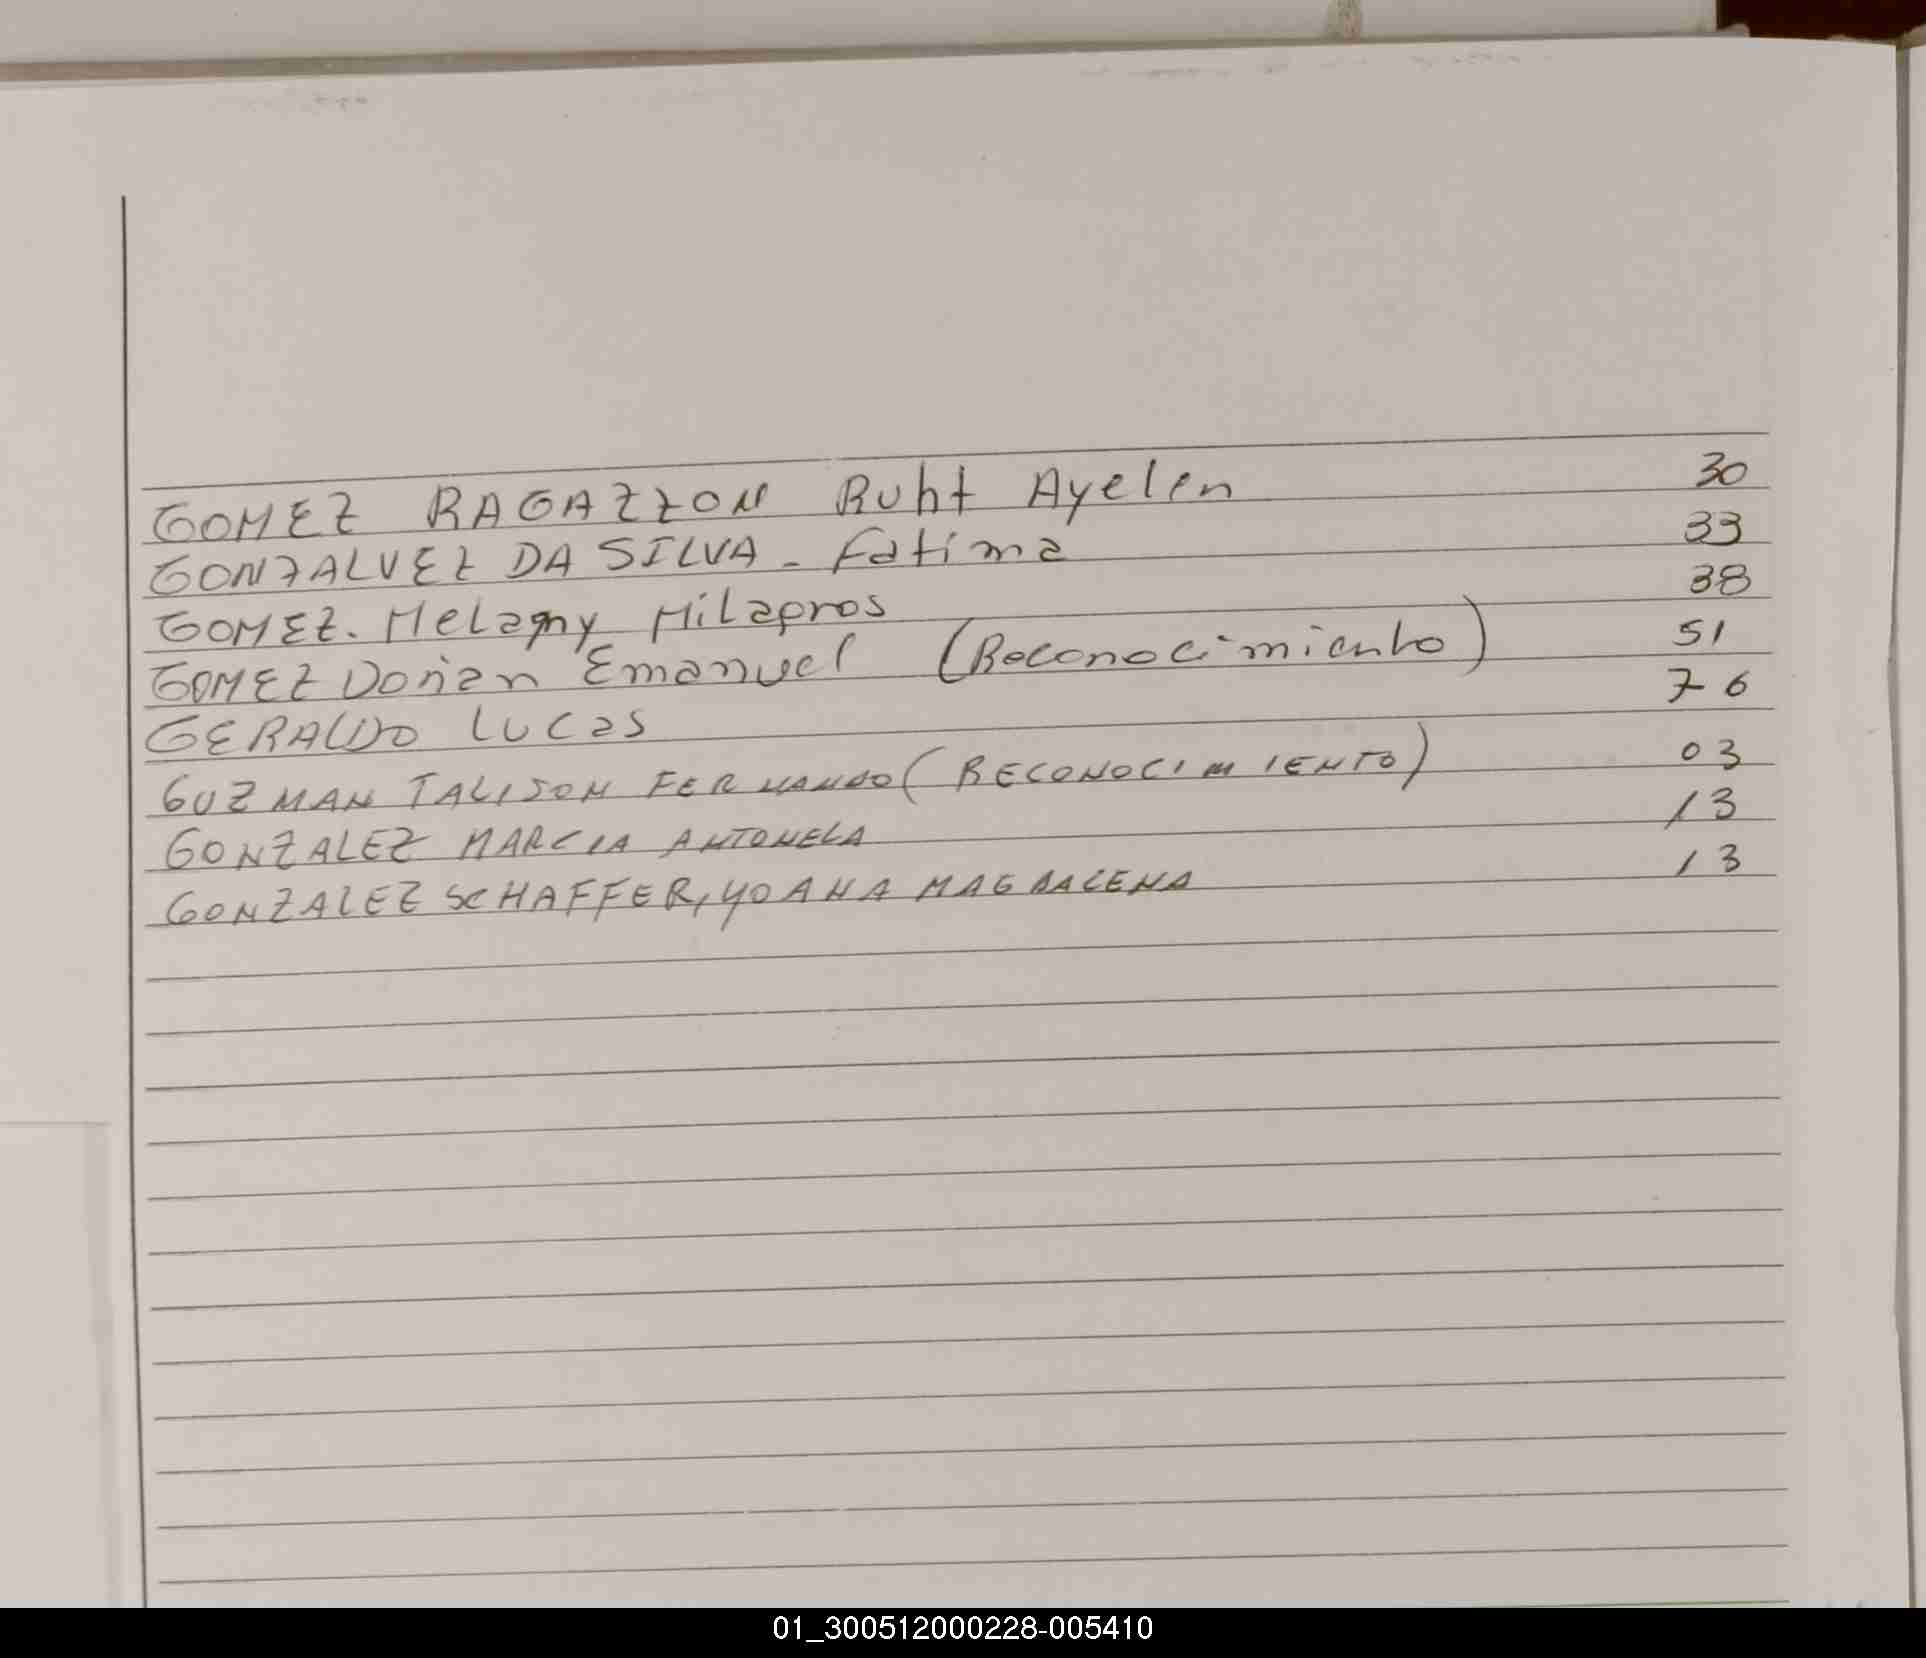 GOMEZ RAGAZZON Ruht Ayelen 30
GONZALVEZ DA SILVA - Fatima 33
GOMEZ. Melagny Milagros 38
GOMEZ Dorian Emanuel (Reconocimiento) 51
GERALDO Lucas 76
GUZMAN TALISON FERNANDO (RECONOCIMIENTO) 03
GONZALEZ MARCIA ANTONELA 13
GONZALEZ SCHAFFER, YOANA MAGDALENA 13
01_300512000228-005410